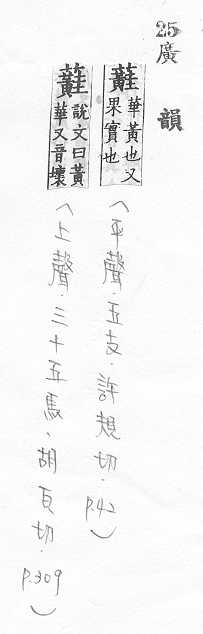 25 廣韻
蘳 華黃也又
果實也
(平聲.五支.許規切.p.42)
蘳 說文曰黃
華又音壞
(上聲.三十五馬.胡瓦切.p.309)